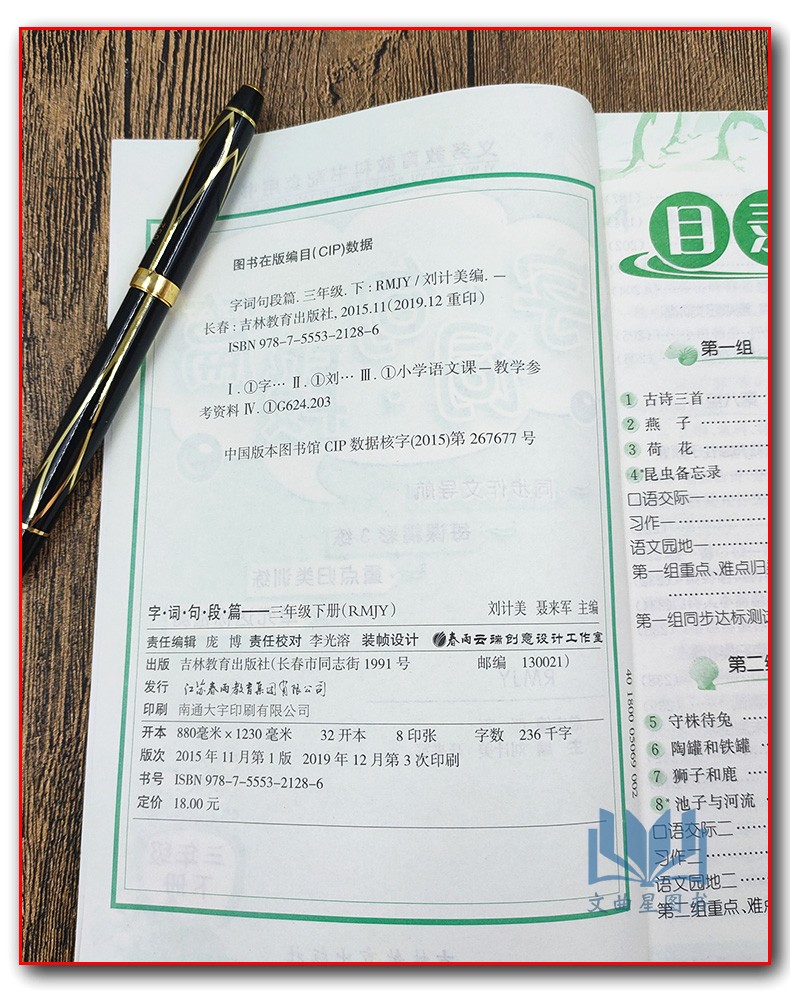 图书在版编目(CIP)数据
字词句段篇. 三年级. 下 : RMJY / 刘计美编. —
长春 : 吉林教育出版社, 2015.11(2019.12 重印)
ISBN 978-7-5553-2128-6
Ⅰ. ①字… Ⅱ. ①刘… Ⅲ. ①小学语文课—教学参
考资料 Ⅳ. ①G624.203
中国版本图书馆 CIP 数据核字(2015)第 267677 号
字·词·句·段·篇——三年级下册(RMJY) 刘计美 聂来军 主编
责任编辑 庞 博 责任校对 李光溶 装帧设计 春雨云瑞创意设计工作室
出版 吉林教育出版社(长春市同志街 1991 号 邮编 130021)
发行 江苏春雨教育集团有限公司
印刷 南通大宇印刷有限公司
开本 880毫米×1230 毫米 32 开本 8 印张 字数 236 千字
版次 2015 年 11 月第 1 版 2019 年 12 月第 3 次印刷
书号 ISBN 978-7-5553-2128-6
定价 18.00 元
目录
第一组
1 古诗三首
2 燕 子
3 荷 花
4*昆虫备忘录
口语交际一
习作一
语文园地一
第一组重点、难点归
第一组同步达标测试
第二组
5 守株待兔
6 陶罐和铁罐
7 狮子和鹿
8*池子与河流
口语交际二
习作二
语文园地二
第二组重点、难点
40 1800 05069 002
文曲星图书